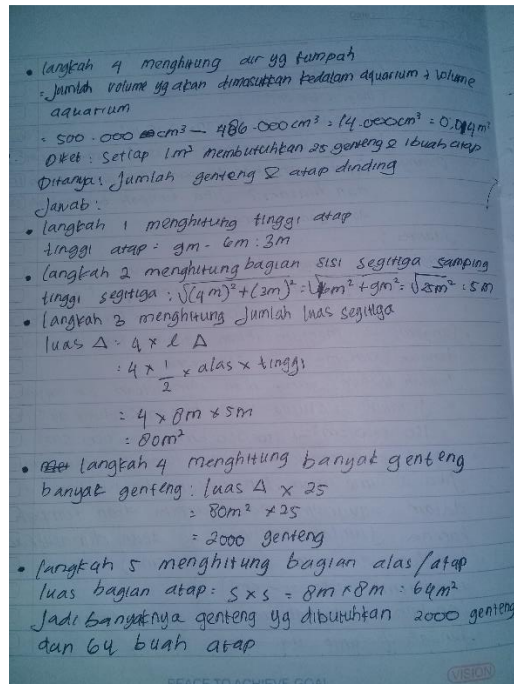 • langkah 4 menghitung air yg tumpah
= Jumlah volume yg akan dimasukkan kedalam aquarium + volume
aquarium
= 500.000 cm³ - 486.000 cm³ = 14.000 cm³ = 0,014 m³
Diket : Setiap 1m² membutuhkan 25 genteng & 1 buah atap
Ditanya : Jumlah genteng & atap dinding
Jawab :
• langkah 1 menghitung tinggi atap
tinggi atap = 9m - 6m : 3m
• langkah 2 menghitung bagian sisi segitiga samping
tinggi segitiga : √(4m)² + (3m)² = √16m² + 9m² = √25m² : 5m
• langkah 3 menghitung Jumlah luas segitiga
luas Δ = 4 x l Δ
= 4 x 1/2 x alas x tinggi
= 4 x 8m x 5m
= 80m²
• langkah 4 menghitung banyak genteng
banyak genteng : luas Δ x 25
= 80m² x 25
= 2000 genteng
• langkah 5 menghitung bagian alas/atap
luas bagian atap = s x s = 8m x 8m = 64m²
Jadi banyaknya genteng yg dibutuhkan 2000 genteng
dan 64 buah atap
PEACE TO ACHIEVE GOAL
VISION